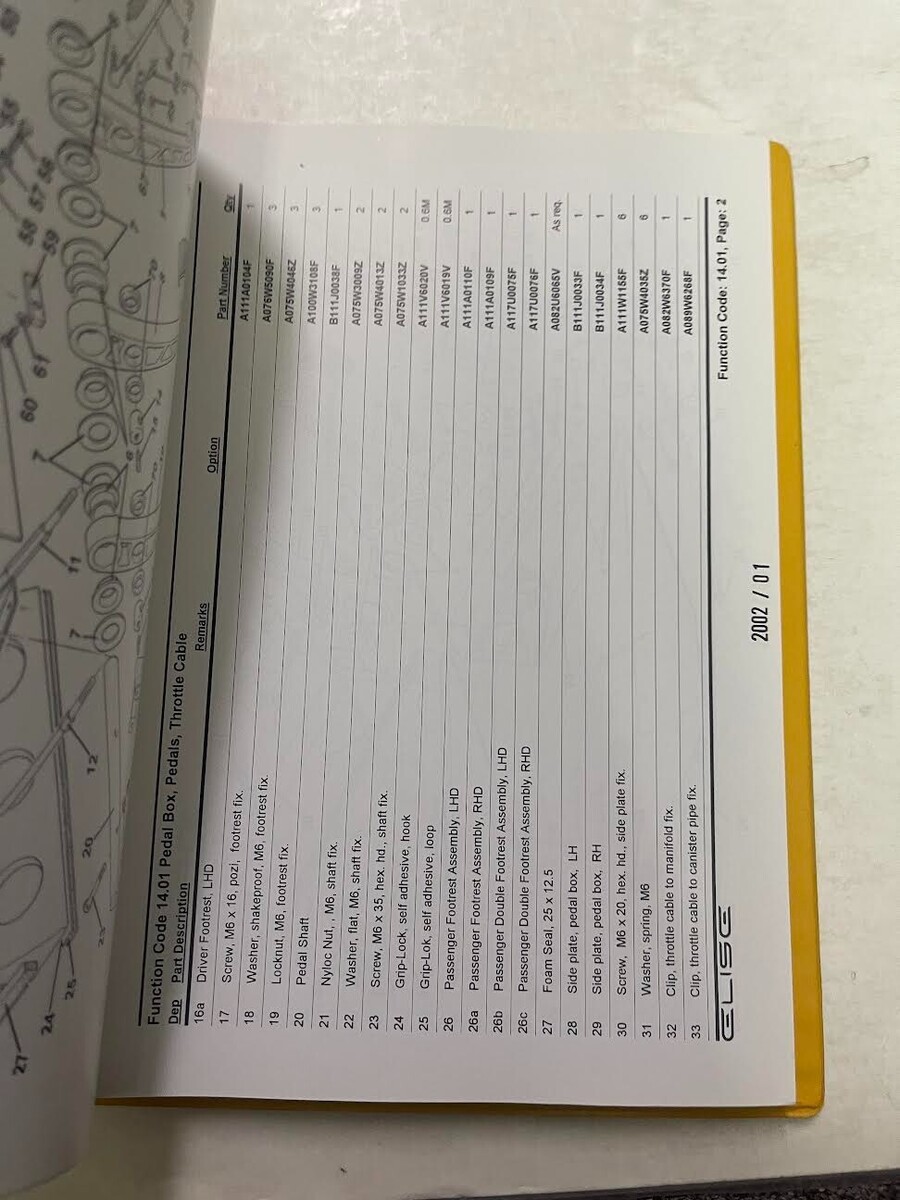 27
24
25
23
20
12
7
11
7
60
61
59
58
57
56
Function Code 14.01 Pedal Box, Pedals, Throttle Cable
Dep Part Description Remarks Option Part Number Qty
16a Driver Footrest, LHD A111A0104F 1
17 Screw, M6 x 16, pozi, footrest fix. A076W5090F 3
18 Washer, shakeproof, M6, footrest fix. A075W4046Z 3
19 Locknut, M6, footrest fix. A100W3108F 3
20 Pedal Shaft B111J0038F 1
21 Nyloc Nut, , M6, shaft fix. A075W3009Z 2
22 Washer, flat, M6, shaft fix. A075W4013Z 2
23 Screw, M6 x 35, hex. hd., shaft fix. A075W1033Z 2
24 Grip-Lock, self adhesive, hook A111V6020V 0.6M
25 Grip-Lok, self adhesive, loop A111V6019V 0.6M
26 Passenger Footrest Assembly, LHD A111A0110F 1
26a Passenger Footrest Assembly, RHD A111A0109F 1
26b Passenger Double Footrest Assembly, LHD A117U0075F 1
26c Passenger Double Footrest Assembly, RHD A117U0076F 1
27 Foam Seal, 25 x 12.5 A082U6065V As req.
28 Side plate, pedal box, LH B111J0033F 1
29 Side plate, pedal box, RH B111J0034F 1
30 Screw, M6 x 20, hex. hd., side plate fix. A111W1155F 6
31 Washer, spring, M6 A075W4035Z 6
32 Clip, throttle cable to manifold fix. A082W6370F 1
33 Clip, throttle cable to canister pipe fix. A089W6268F 1
ELISE Function Code: 14.01, Page: 2
2002 / 01